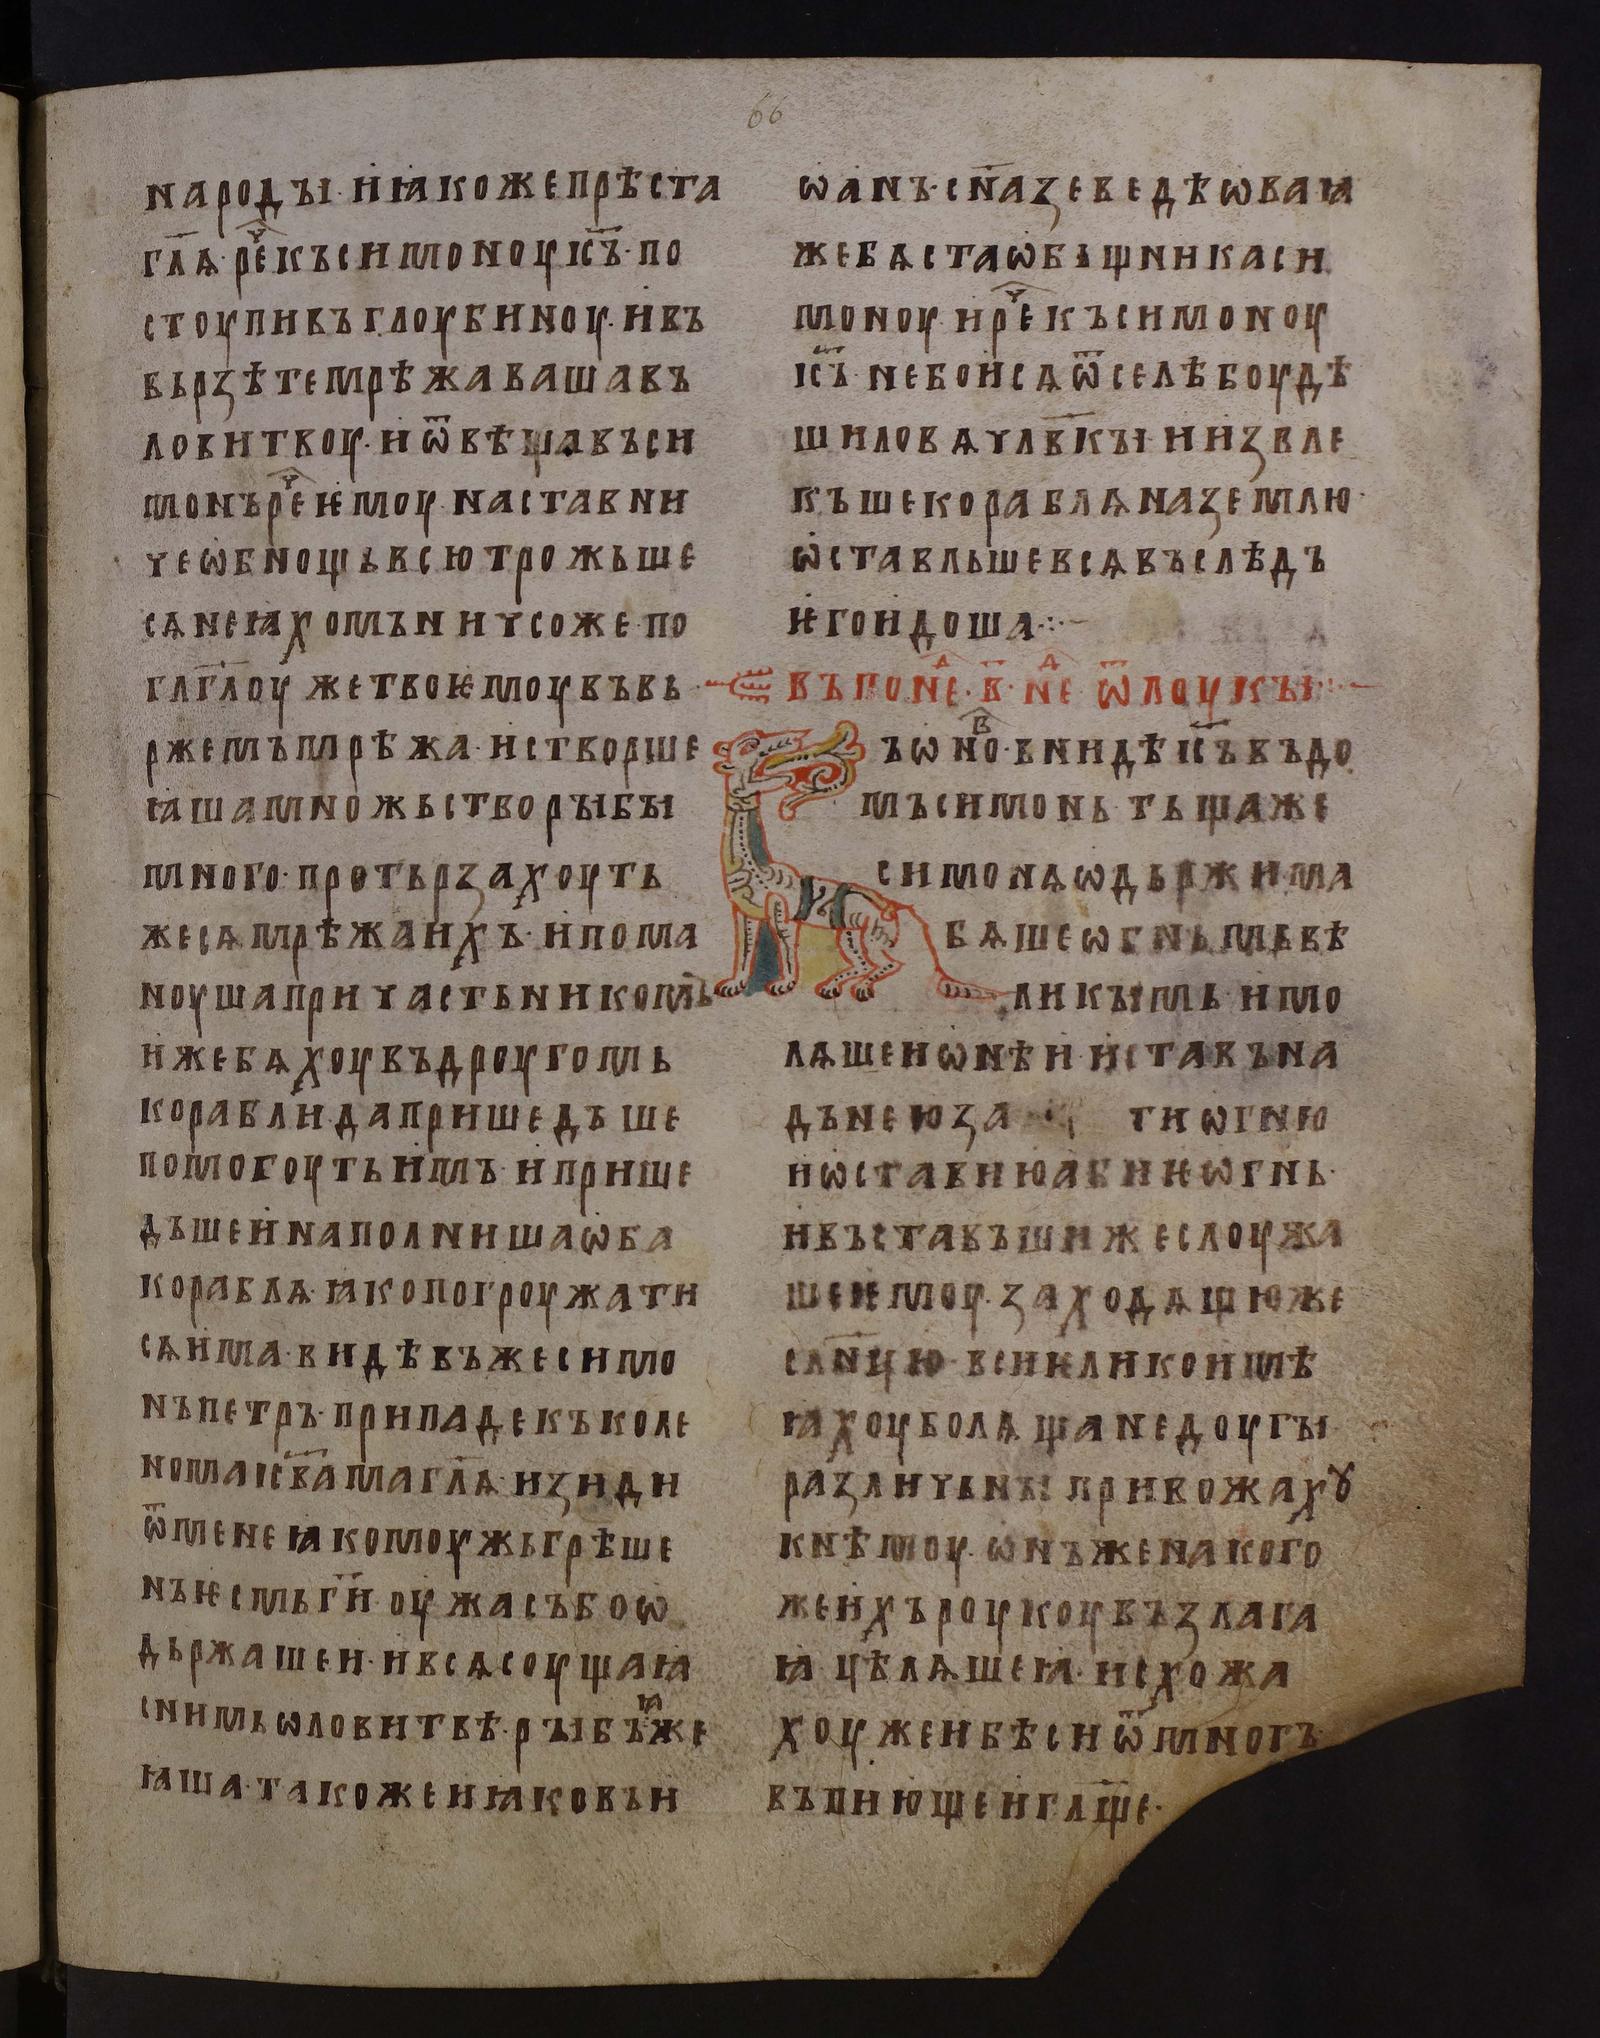 66
народꙑ· и ꙗкоже прѣста
гл҃ѧ· реⷱ҇ къ симоноу іс҃ъ· по
стоупи въ глоубиноу· и въ
вьрзѣте мрѣжа ваша въ
ловитвоу· и ѿвѣщавъ си
монъ реⷱ҇ ѥмоу· настави
че ѡбнощь всю трожьше
сѧ не ꙗхомъ ничсоже· по
гл҃г҃лоу же твоѥмоу въвь
ржемъ мрѣжа· и створше
ꙗша множьство рꙑбꙑ
много· протьрзахоуть
же сѧ мрѣжа ихъ· и пома
ноуша причастьникомъ
иже бѧхоу въ дроугомь
корабли· да пришедъше
помогоуть имъ· и прише
дъше и наполниша ѡба
кораблѧ· ꙗко погроужати
сѧ има· видѣвъ же симо
нъ петръ· припаде къ коле
нома іс҃вама гл҃ѧ· изиди
ѿ мене ꙗко моужь грѣше
нъ ѥсмь г҃и· оужасъ бо ѡ
дьржаше и· и всѧ соущаꙗ
с нимь ѡ ловитвѣ· рꙑбъꙗже
ꙗша· такоже и ꙗковъ и
ѡанъ· сн҃а зеведѣѡва ꙗ
же бѧста ѡбьщника си
моноу· и реⷱ҇ къ симоноу
іс҃ъ· не боисѧ ѿселѣ боудѣ
ши ловѧ чл҃вкꙑ· и извле
къше кораблѧ на землю·
ѡставльше всѧ въслѣдъ
ѥго идоша·:·
въ понеⷣ· в҃· неⷣ ѿ лоукꙑ
ъ ѡноⷡ· вниде іс҃ъ въ до
мъ симонь· тьща же
симонѧ ѡдьржима
бѧше ѡгньмь вѣ
ликꙑмь· и мо
лѧше и ѡ нѣи· и ставъ на
дъ нею за тиѡгню
и ѡстави ю абиѥ ѡгнь·
и въставъши же слоужа
ше ѥмоу· заходѧщю же
сл҃нцю· вси ѥлико имѣ
ꙗхоу болѧща недоугꙑ
различьнꙑ привожахꙋ
к нѣмоу· ѡнъ же на кого
же ихъ роукоу възлага
ꙗ цѣлѧше ꙗ· исхожа
хоу же и бѣси ѿ многъ
въпиюще и гл҃ще·